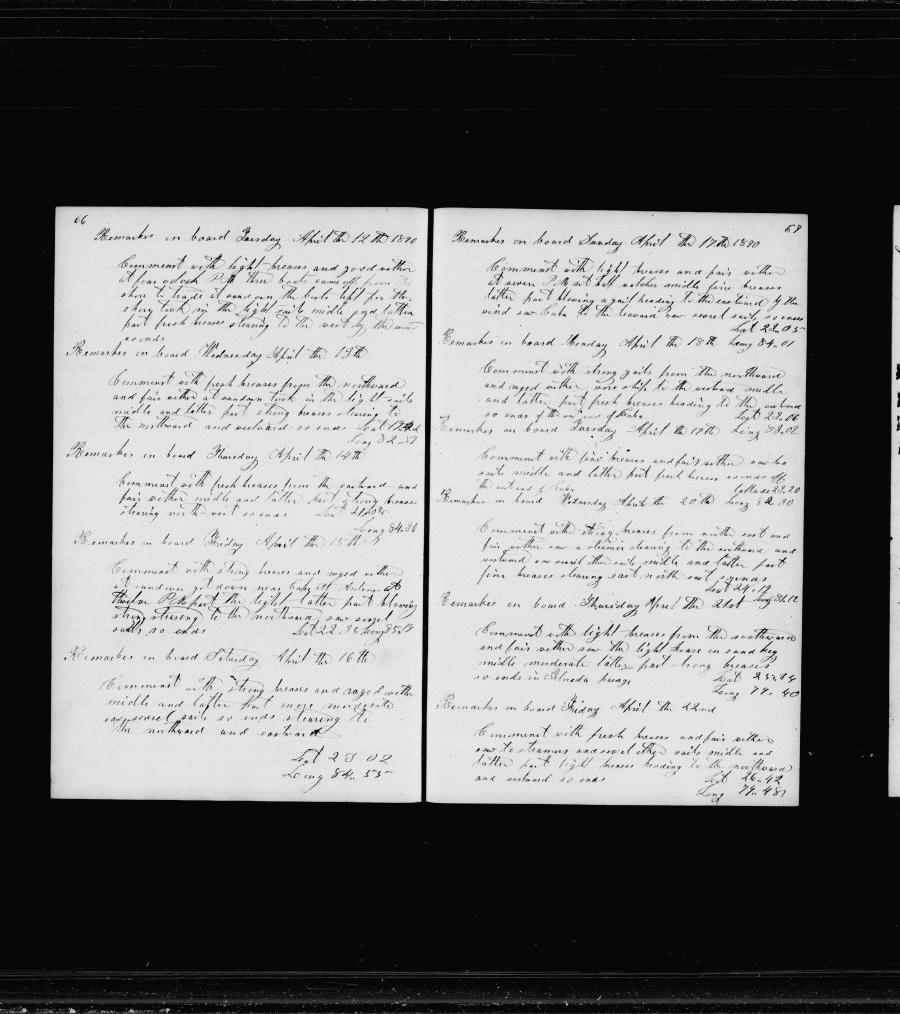 66
Remarkes on board Tuesday April the 12th 1870
Comments with light breases and good wether
at four oclock P.M. three boats came off from
shore to trade at sundown the boats left for the
shore took in the light sails midle and latter
part fresh breases stearing to the west by the
so ends
Remarkes on board Wednesday April the 13th
Comments with fresh breases from the northward
and fair wether at sundown took in the light sails
midle and latter part strong breases stearing to
the northward and westward so ends Lat
Long 82
Remarkes on board Thursday April the 14th
Comments with fresh breases from the eastward and
fair wether midle and latter part strong breases
stearing north-west so ends Lat
Long 84
Remarkes on board Friday April the 15th
Comments with strong breases and raged wether
at sundown got down near Cape St Antonio at
twelve P.M. past the light latter part blowing
strong stearing to the northward saw sevrel
sails so ends Lat 22 Long 85
Remarkes on board Saturday April the 16th
Comments with strong breases and raged wether
midle and latter part more moderate
saw sevrel sails so ends stearing to
the northward and eastward
Lat 23 02
Long 84 55
Remarkes on board Sunday April the 17th 1870
Comments with light breases and fair wether
at seven P.M. set half watches midle fine breases
latter part blowing a gail heading to the eastward by the
wind saw Cuba to the leward saw sevrel sails so ends
Lat 23 05
Remarkes on board Monday April the 18th Long 84 01
Comments with strong gails from the northward
and raged wether wore ship to the westward midle
and latter part fresh breases heading to the eastward
so ends of the west end of Cuba Lat 23 06
Remarkes on board Tuesday April the 19th Long 83 02
Comments with fine breases and fair wether saw two
sails midle and latter part fresh breases so ends off
the west end of Cuba Latitude 23 20
Remarkes on board Wednesday April the 20th Long 82 30
Comments with strong breases from north east and
fair wether saw a steamer stearing to the westward and
westward saw sevrel other sails midle and latter part
fine breases stearing east north east so ends
Lat 24 19
Remarkes on board Thursday April the 21st Long 81 12
Comments with light breases from the southward
and fair wether saw the light house on sand key
midle moderate latter part strong breases
so ends in Floreda passage Lat 25
Long 79 40
Remarkes on board Friday April the 22nd
Comments with fresh breases and fair wether
saw to steamers and sevrel other sails midle and
latter part light breases heading to the northward
and eastward so ends Lat 26 42
Long 79 48